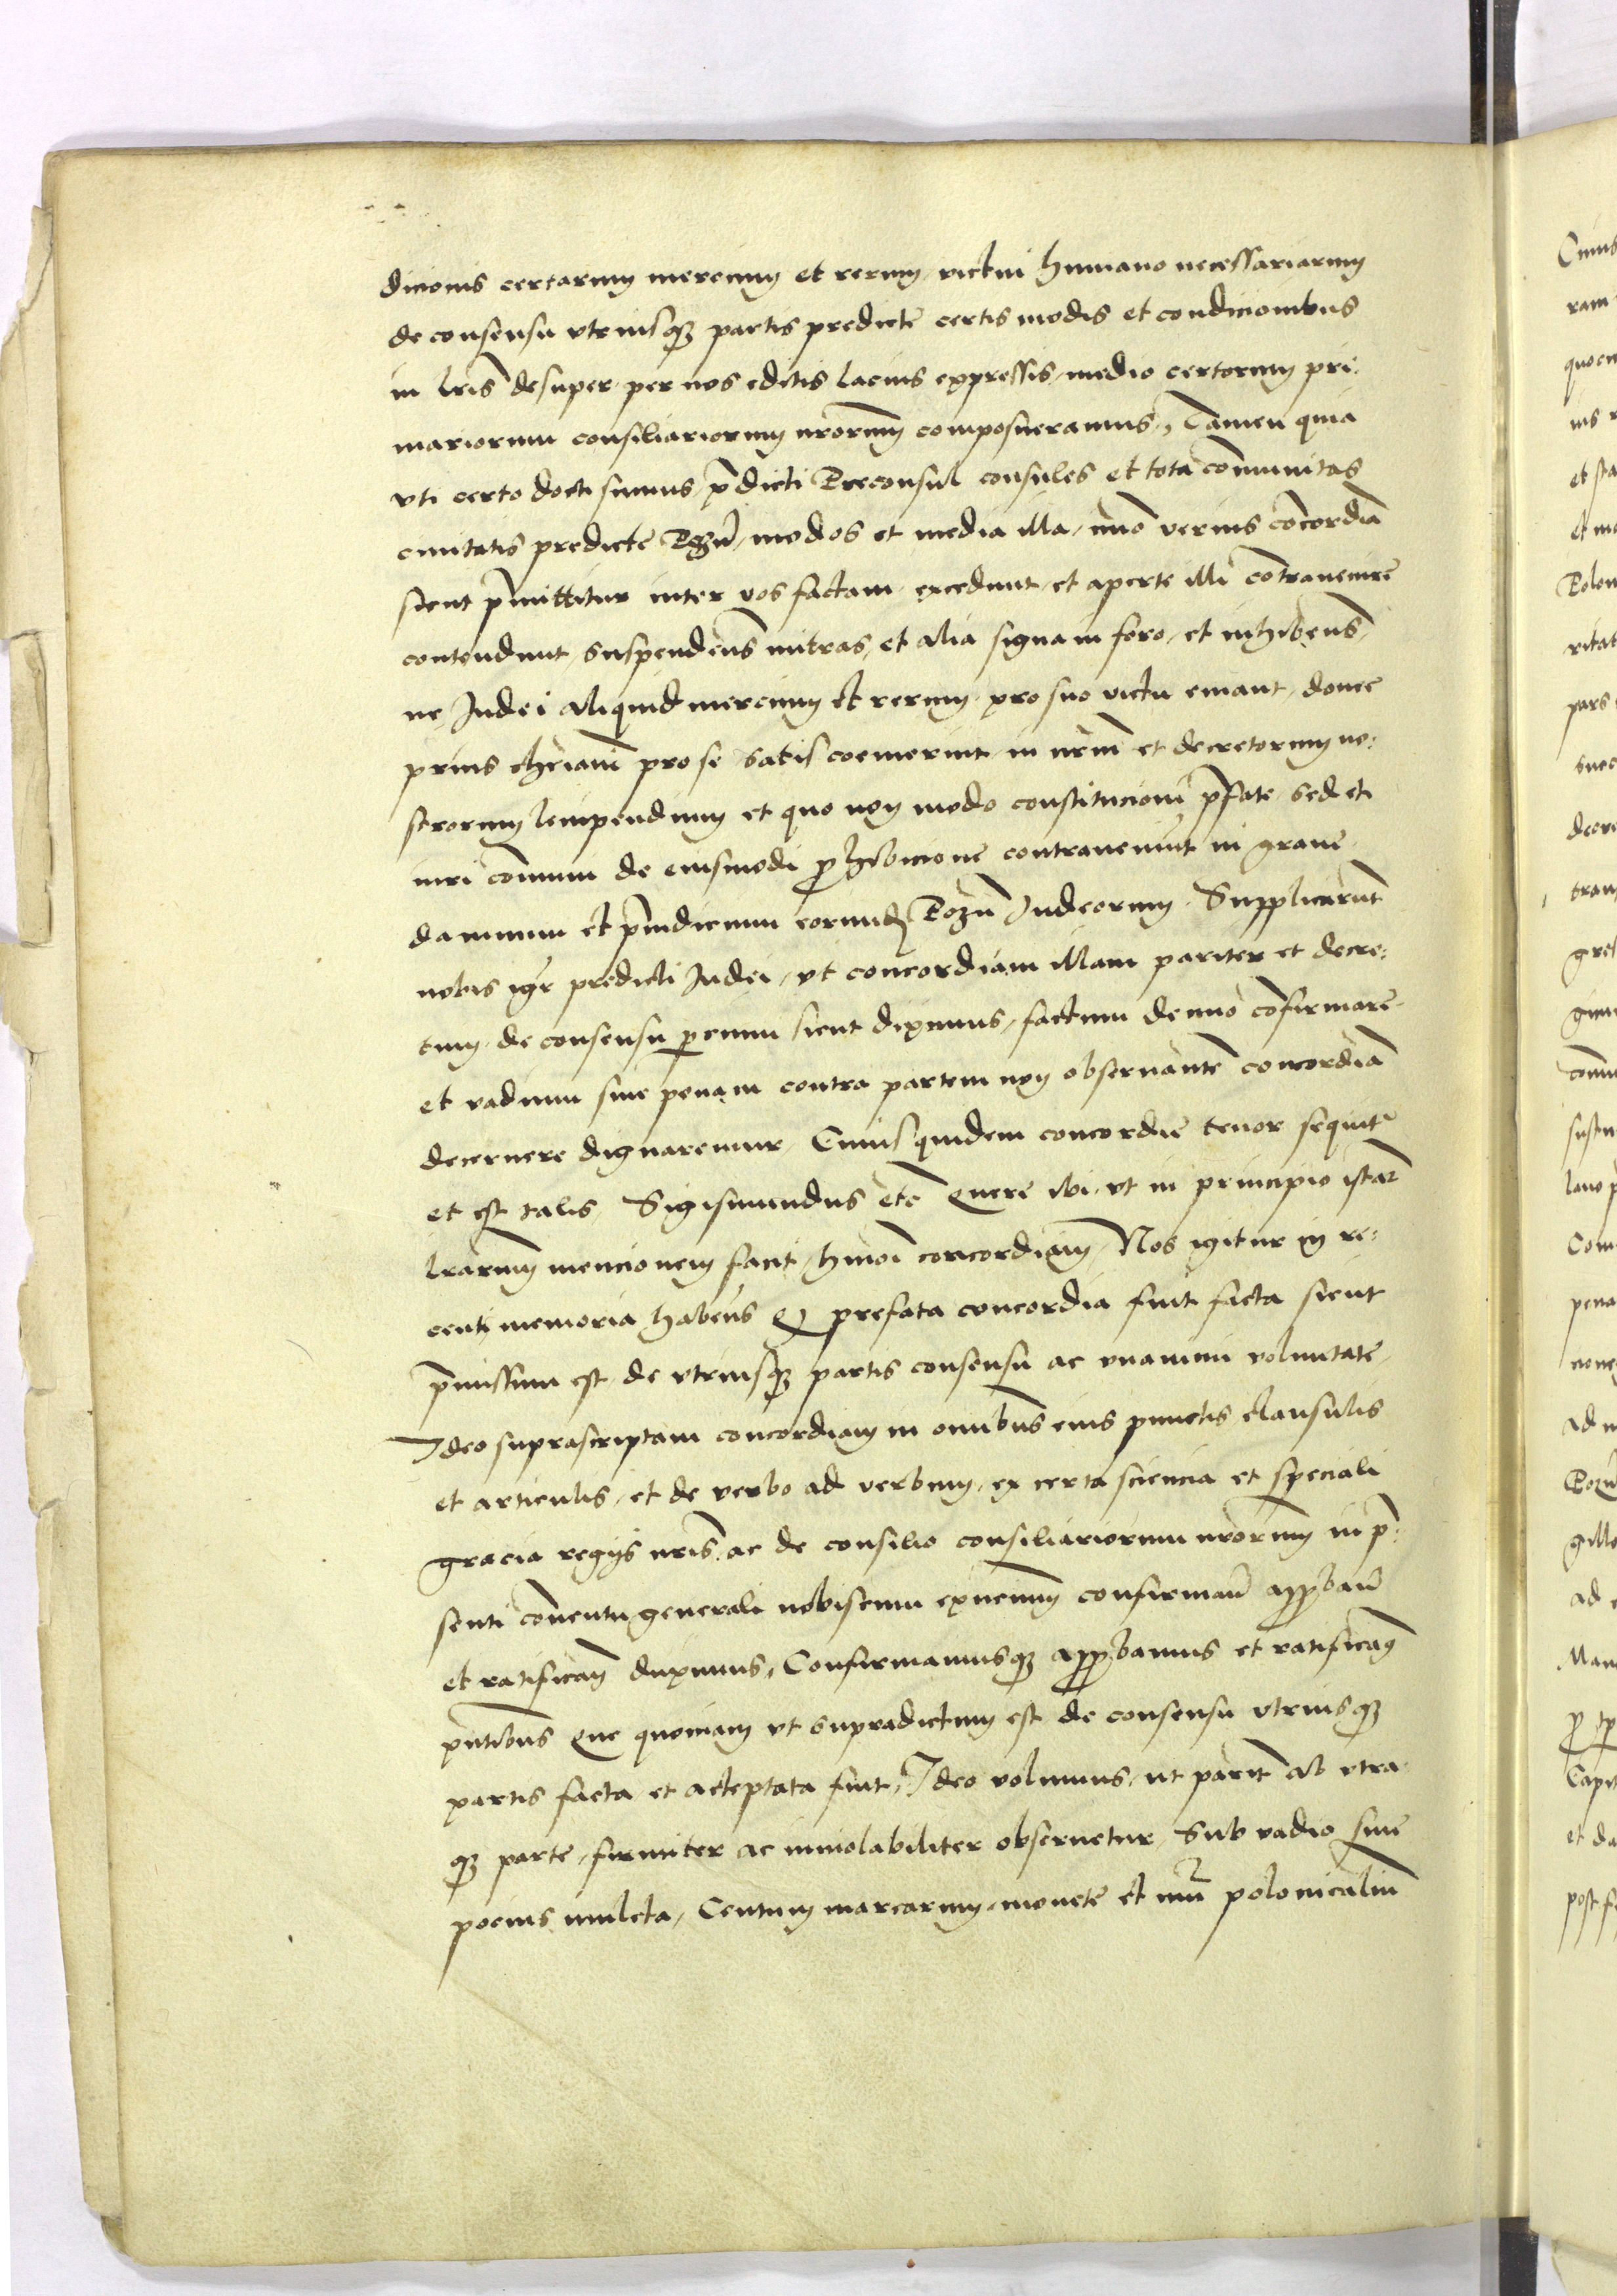 dicionis certarum mercium et rerum victui humano necessariarum
de consensu vtriusq partis predicte certis modis et condicionibus
in lris desuper per nos editis lacius expressis medio certorum pri:
mariorum consiliariorum nrorum composueramus, Tamen quia
vti certo docti sumus pdicti Preconsul consules et tota comunitas
ciuitatis predicte modos et media illa, imo verius concordia
sicut pmittitur inter vos factam excedunt et aperte illi contrauenire
contendunt suspendens mitras, et alia signa in foro, et inhibens,
ne Judei aliquid mercium et rerum pro suo victu emant, donec
prius chriani pro se satis coemerint in nrm et decretorum no:
strorum lempendium et quo non modo constitucioni pfate sed eti
iuri comuni de eiusmodi phibicione contraueniut in graue
damnum et piudicium eorund Pozn Judeorum. Supplicarunt
nobis igr predicti Judei, vt concordiam illam pariter et decre:
tum de consensu parcium sicut diximus, factum denuo cofirmare
et vadium siue penam contra partem non obseruante concordia
decernere dignaremur, Cuiusquidem concordie tenor sequit
et est talis, Sigismundus etc Quere ibi vt in principio istar
lrarum mencionem facit, hmoi concordiam, Nos igitur in re:
centi memoria habens q prefata concordia fuit facta sicut
pmissum est de vtriusq partis consensu ac vnanimi voluntate,
Ideo suprascriptam concordiam in omibus eius punctis clausulis
et articulis, et de verbo ad verbum, ex certa sciencia et speciali
gracia regijs nris, ac de consilio consiliariorum nrorum in p:
senti conuentu generali nobiscum exntium confirmad appbad
et ratificad duximus, Confirmamusq appbamus et ratificam
pntibus Que quoniam vt supradictum est de consensu vtriusq
partis facta et acceptata fuit, Ideo volumus, vt parit ab vtra
q parte, firmiter ac inuiolabiliter obseruetur, Sub vadio siue
poenis mulcta, Centum marcarum monete et nui polonicaliu